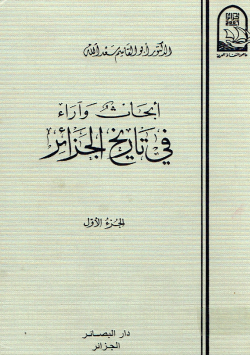 الدكتور أبو القاسم سعد الله
أبحاث وآراء
في تاريخ الجزائر
الجزء الأول
دار البصائر
الجزائر